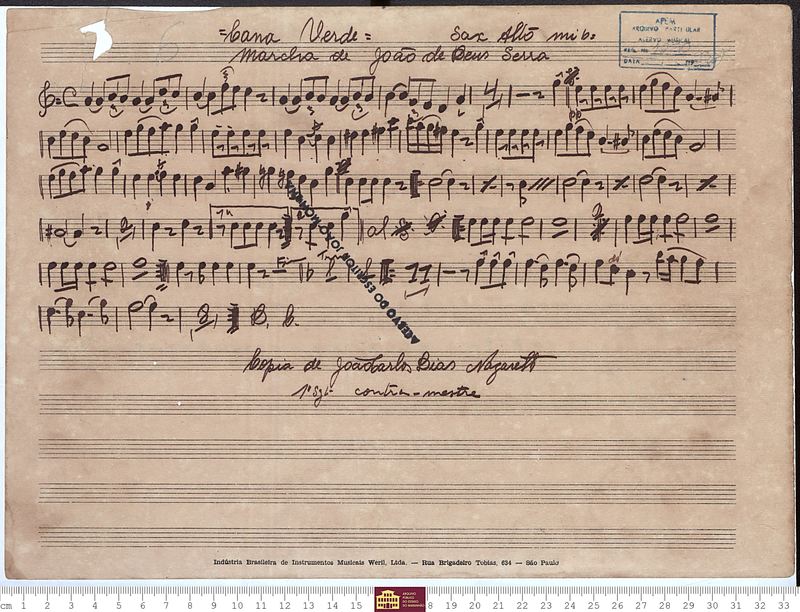 =Cana Verde= Sax Alto mib.
Marcha de João de Deus Serra
APEM
ARQUIVO PARTICULAR
ACERVO MUSICAL
REG. Nº
DATA
ACERVO DO ESCRITOR JOSÉ
Copia de João Carlos Dias Nazareth
1º Sgt contra-mestre
Indústria Brasileira de Instrumentos Musicais Weril, Ltda. — Rua Brigadeiro Tobias, 634 — São Paulo
cm 1 2 3 4 5 6 7 8 9 10 11 12 13 14 15 18 19 20 21 22 23 24 25 26 27 28 29 30 31 32 33
ARQUIVO
PÚBLICO
DO ESTADO
DO MARANHÃO